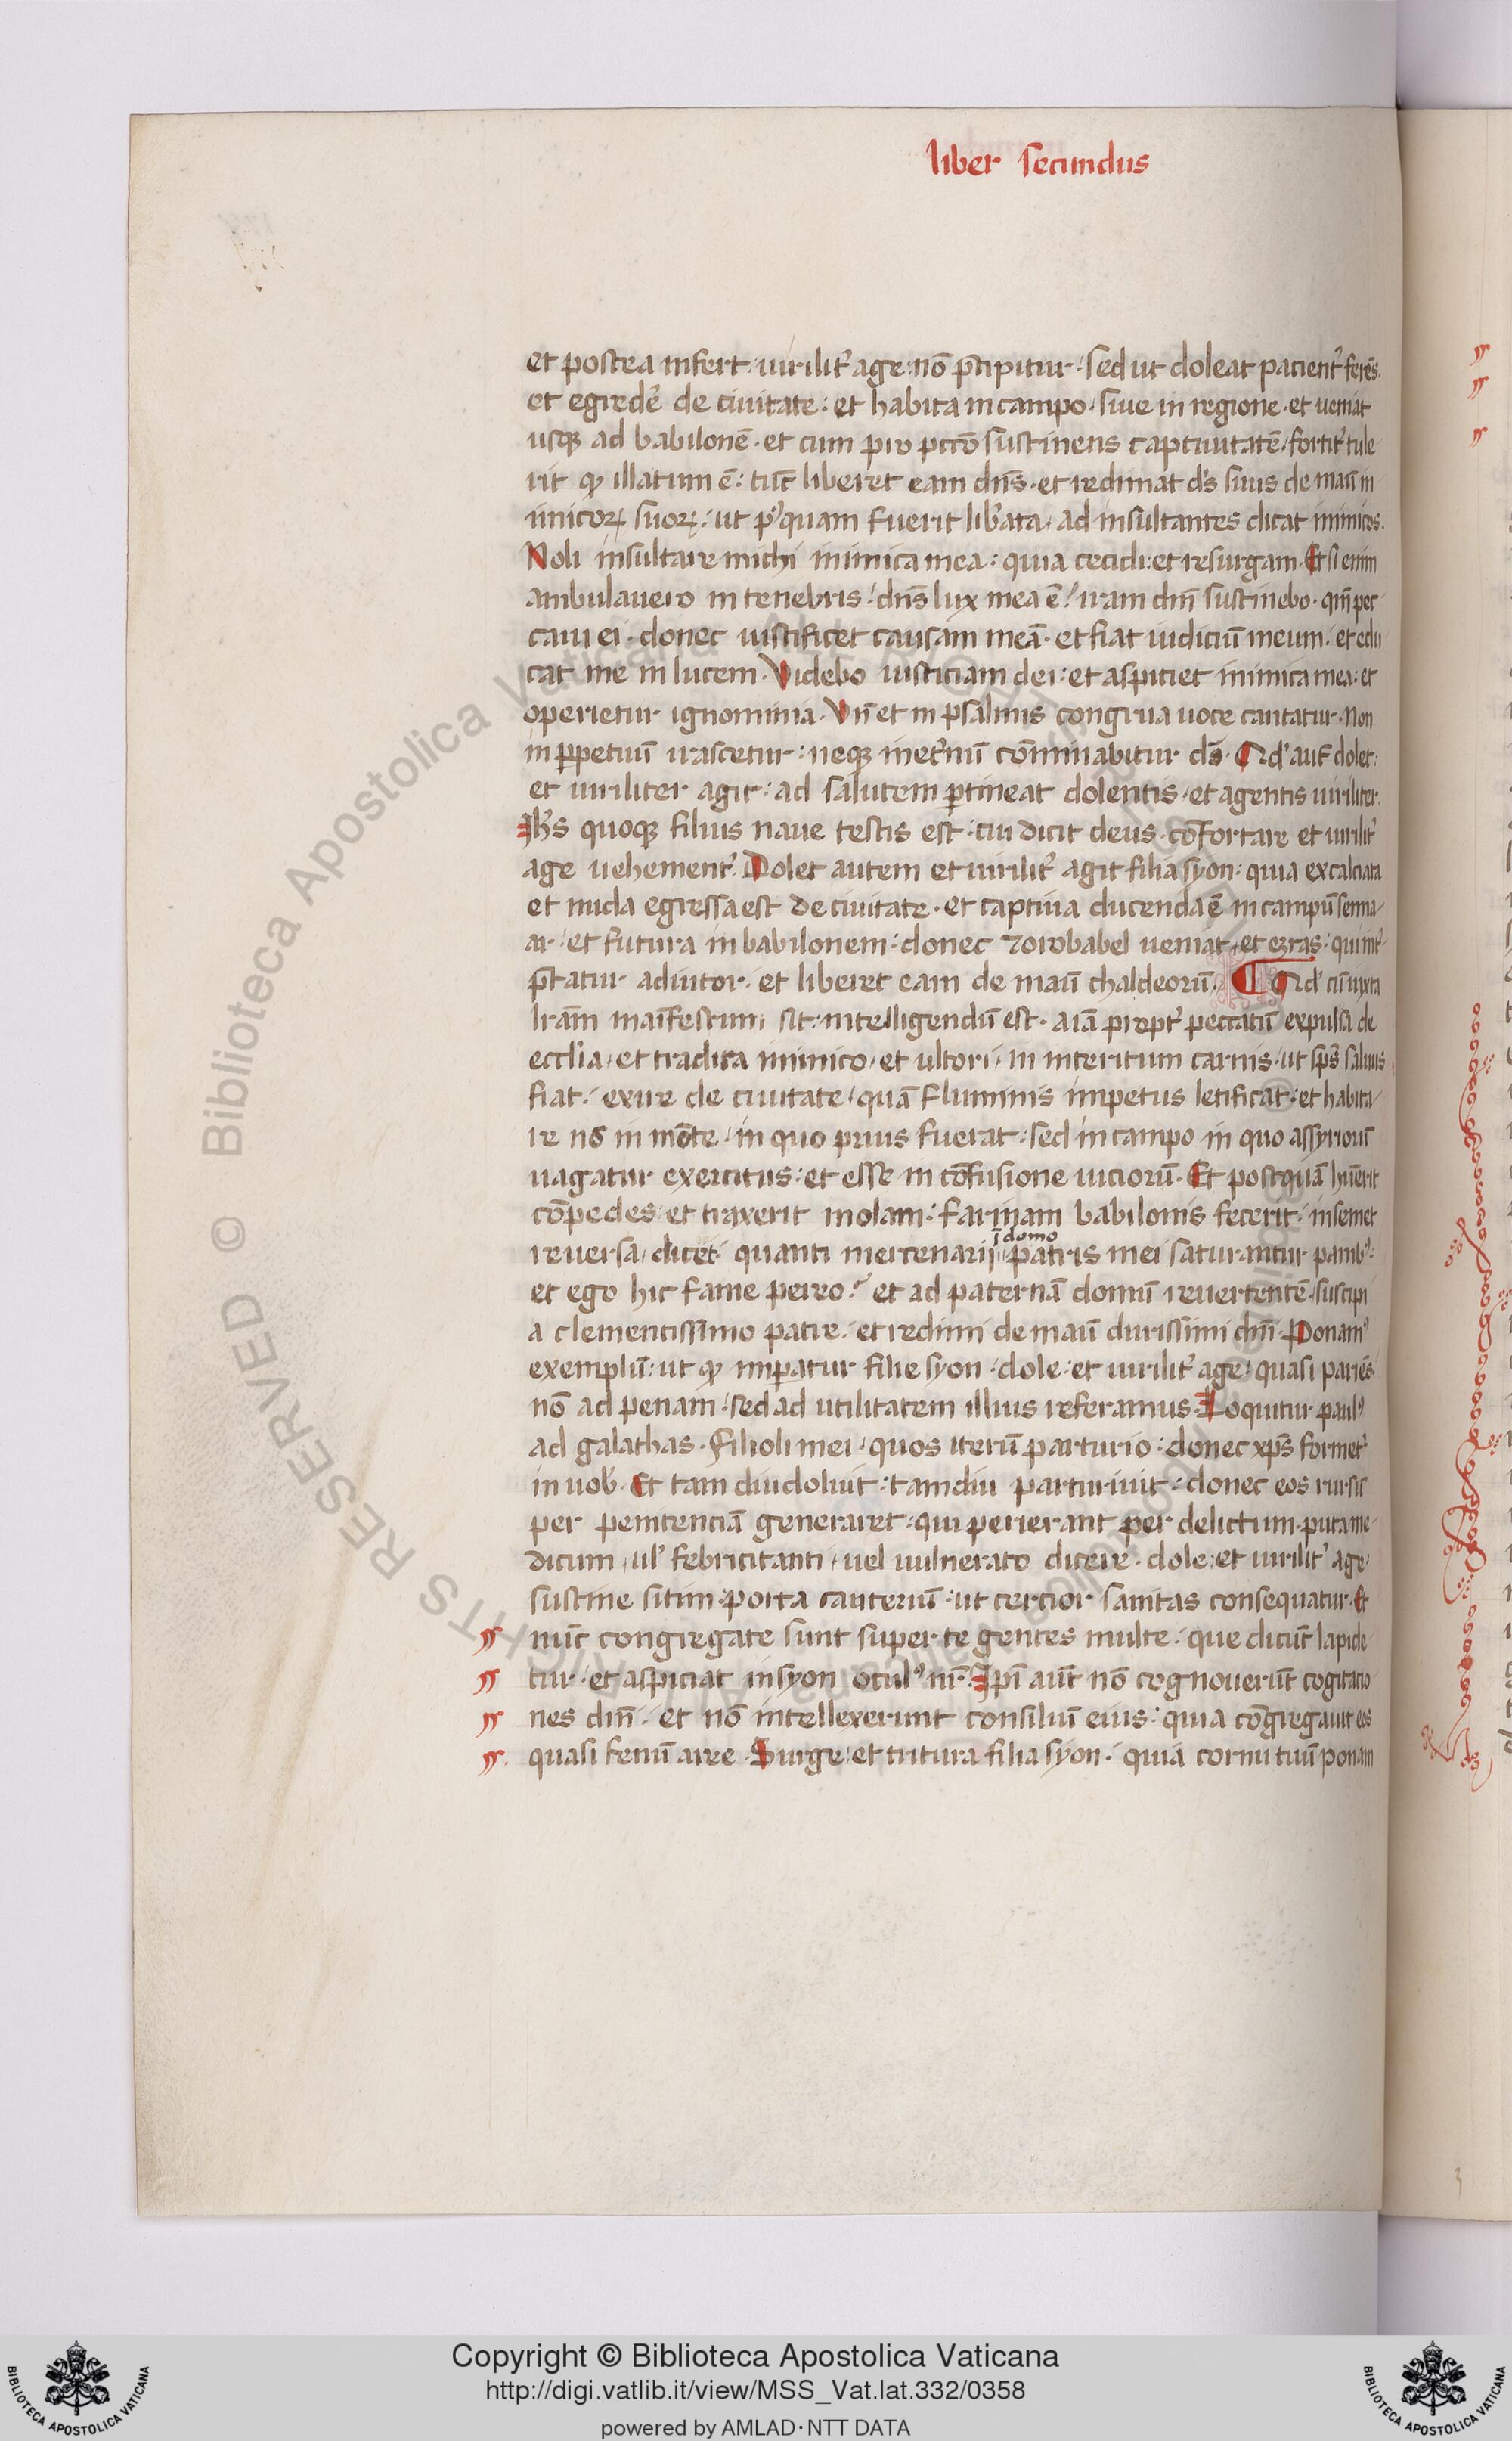 liber secundus
et postea infert· uirilit᾽ age· nō p̄cipitur· sed ut doleat pacient᾽ ferēs·
et egrede᾽ de ciuitate· et habita in campo· siue in regione· et ueniat
usq; ad babilonē· et cum pro pctō sustinens captiuitatē· fortit᾽ tule
rit illatum ē· tūc liberet eam dn̄s· et redimat d᾽s suus de manū in
imicoꝝ suoꝝ· ut p᾽quam fuerit lib᾽ata· ad insultantes dicat inimicos·
Noli insultare michi inimica mea· quia cecidi· et resurgam· Et si enim
ambulauero in tenebris· dn̄s lux mea ē· iram dn̄i sustinebo· qm̄ pec
caui ei· donec iustificet causam meā· et fiat iudiciū meum· et edu
cat me in lucem· Videbo iusticiam dei· et aspiciet inimica mea· et
operietur ignominia· Vn̄ et in psalmis congrua uoce cantatur· Non
in ꝑpetuū irascetur· neq; in et᾽nū cōminabitur ds̄· Qd᾽ aut̄ dolet·
et uiriliter agit· ad salutem ꝑtineat dolentis· et agentis uiriliter·
Ih᾽s quoq; filius naue testis est· cui dicit deus· cōfortare et uirilit᾽
age uehement᾽· Dolet autem et uirilit᾽ agit filia syon· quia excalciata
et nuda egressa est de ciuitate· et captiua ducenda ē in campū senna
ar· et futura in babilonem· donec zorobabel ueniat· et ezras· qui int᾽
p̄tatur adiutor· et liberet eam de manū chaldeorū· Qd᾽ cū iuxta
lr̄am manīfestum sit· intelligendū est· aīam propt᾽ peccatū expulsā de
eccl᾽ia· et tradita inimico· et ultori· in interitum carnis· ut sp̄s saluus
fiat· exire de ciuitate· quā fluminis impetus letificat· et habita
re nō in mōte· in quo prius fuerat· sed in campo in quo assyrioꝝ
uagatur exercitus· et esse in cōfusione uiciorū· Et postquā
cōpedes· et traxerit molam· farinam babilonis fecerit· in semet
reuersa· dicet· quanti mercenarij ī domo patris mei saturantur panib᾽·
et ego hic fame pereo? et ad paternā domū reuertentē· suscipi
a clementissimo patre· et redimi de manū durissimi dn̄i· Ponam᾽
exemplū· ut imꝑatur filie syon· dole· et uirilit᾽ age· quasi pariēs
nō ad penam· sed ad utilitatem illius referamus· Loquitur paul᾽
ad galathas· filioli mei· quos iterū parturio· donec xp̄s formet᾽
in uob᾽· Et tam diu doluit· tamdiu parturiuit· donec eos rursū
per penitenciā generaret· qui perierant per delictum· puta me
dicum· ul᾽ febricitanti· uel uulnerato dicere· dole· et uirilit᾽ age·
sustine sitim· porta cauteriū· ut cercior sanitas consequatur· Et
nūc congregate sunt super te gentes multe· que dicūt lapide
tur· et aspiciat in syon ocul᾽ nr̄· Ipī aūt nō cognouerūt cogitacio
nes dn̄i· et nō intellexerunt consiliū eius· quia cōgregauit eos
quasi fenū aree· Surge· et tritura filia syon· quia cornu tuū ponam
Copyright © Biblioteca Apostolica Vaticana
http://digi.vatlib.it/view/MSS_Vat.lat.332/0358
powered by AMLAD·NTT DATA
BIBLIOTECA APOSTOLICA VATICANA
BIBLIOTECA APOSTOLICA VATICANA